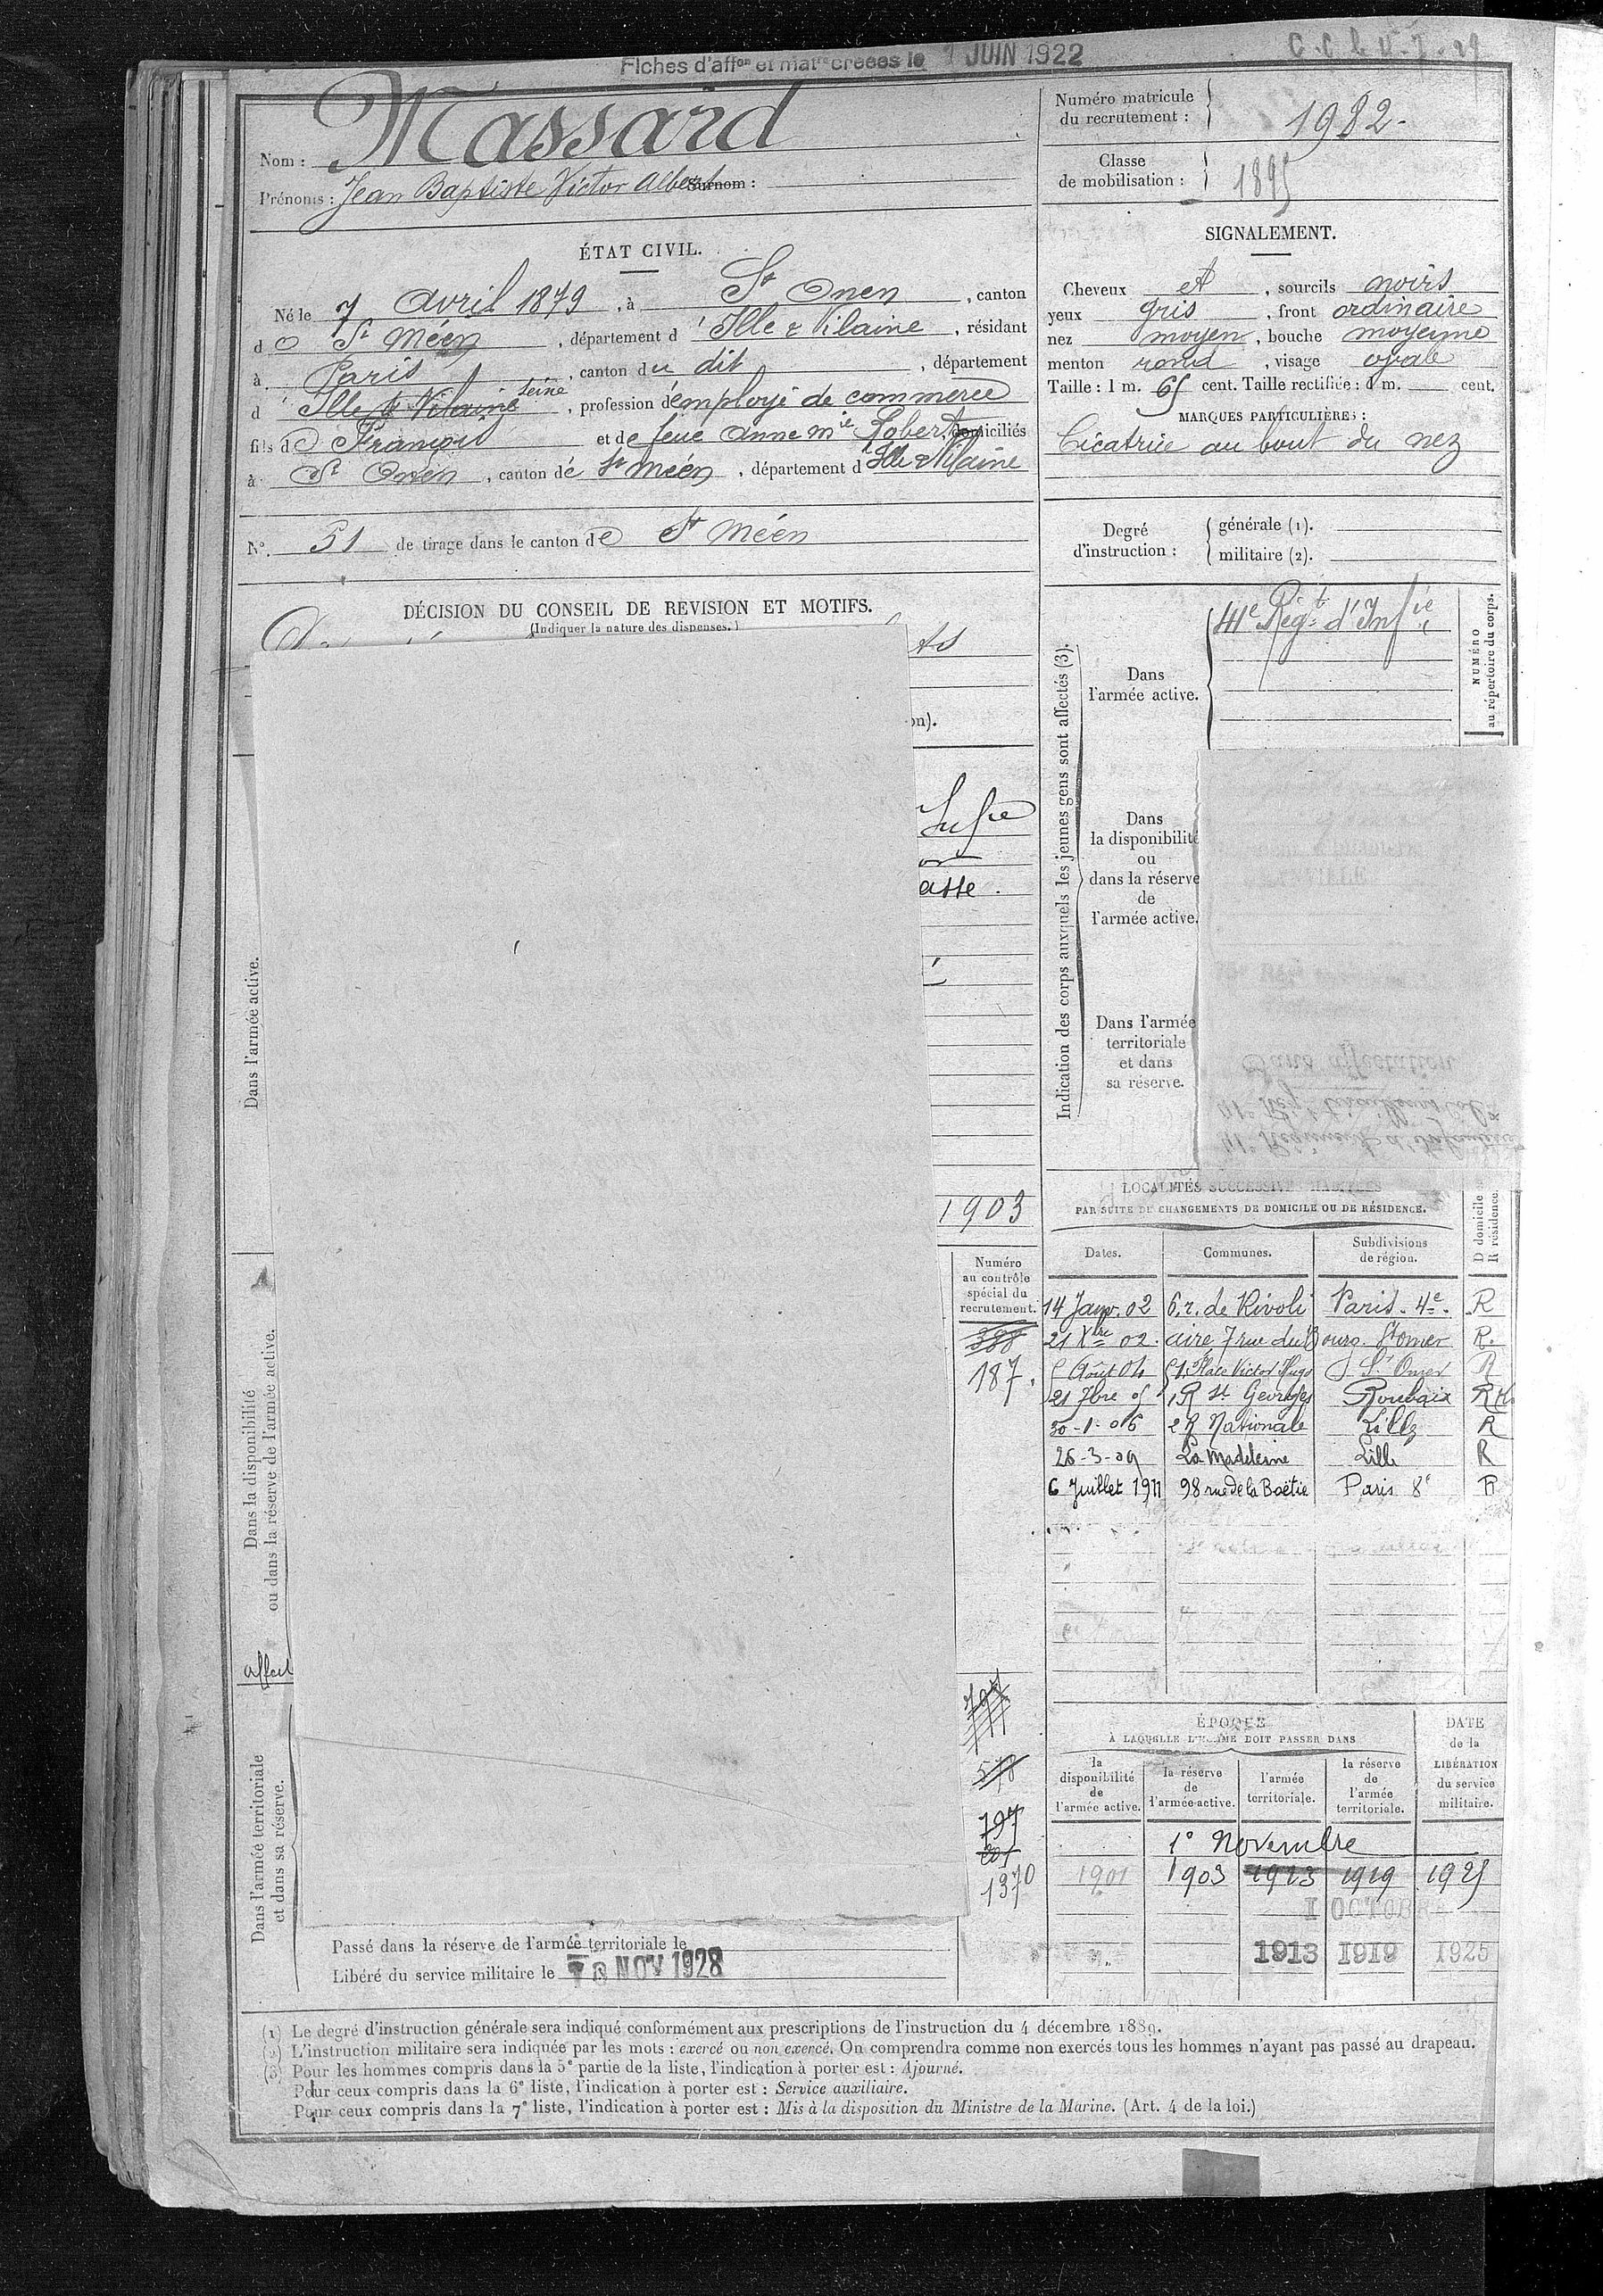 Fiches d'affon et matre créées le 1 JUIN 1922
C.C le 4-7-29
Nom : Massard
Prénoms : Jean Baptiste Victor Albert Surnom :
Numéro matricule du recrutement : 1982.
Classe de mobilisation : 1895
ÉTAT CIVIL.
Né le 7 Avril 1879, à St Onen, canton
de St Méen, département d'Ille & Vilaine, résidant
à Paris, canton du dit, département
d Ille & Vilaine Seine, profession d'employé de commerce
fils de François et de feue Anne Mie Robert, domiciliés
à St Onen, canton de St Méen, département d'Ille & Vilaine
No. 51 de tirage dans le canton de St Méen
SIGNALEMENT.
Cheveux et, sourcils noirs
yeux gris, front ordinaire
nez moyen, bouche moyenne
menton rond, visage ovale
Taille : 1 m. 65 cent. Taille rectifiée : 1 m. cent.
MARQUES PARTICULIÈRES :
Cicatrice au bout du nez
Degré d'instruction :
générale (1).
militaire (2).
DÉCISION DU CONSEIL DE REVISION ET MOTIFS.
(Indiquer la nature des dispenses.)
on).
asse.
1903
Dans l'armée active.
Dans la disponibilité
ou dans la réserve de l'armée active.
affect
Dans l'armée territoriale
et dans sa réserve.
Numéro
au contrôle
spécial du
recrutement.
388
187.
797
578
797
201
1370
Passé dans la réserve de l'armée territoriale le
Libéré du service militaire le NOV 1928
Indication des corps auxquels les jeunes gens sont affectés (3).
Dans
l'armée active.
41e Régt d'Infie
NUMÉRO
au répertoire du corps.
Dans
la disponibilité
ou
dans la réserve
de
l'armée active.
Dans l'armée
territoriale
et dans
sa réserve.
LOCALITÉS SUCCESSIVE HABITÉES
PAR SUITE DE CHANGEMENTS DE DOMICILE OU DE RÉSIDENCE.
D domicile
R résidence.
Dates. Communes. Subdivisions de région.
14 Janv. 02 6, r. de Rivoli Paris. 4e. R
21 Xbre 02. aire, 7 rue du Bourg. St omer R.
5 Août 04 51, Place Victor Hugo St Omer R
21 7bre 05 1 R St Georges Roubaix R
30-1-06 2 R Nationale Lille R
26-3-09 La Madeleine Lille R
6 Juillet 1911 98 rue de la Boëtie Paris 8e R
ÉPOQUE
À LAQUELLE L'HOMME DOIT PASSER DANS
DATE
de la
LIBÉRATION
du service
militaire.
la disponibilité de l'armée active.
la réserve de l'armée active.
l'armée territoriale.
la réserve de l'armée territoriale.
1er Novembre
1901 1903 1913 1919 1925
1 OCTOBRE
1913 1919 1925
(1) Le degré d'instruction générale sera indiqué conformément aux prescriptions de l'instruction du 4 décembre 1889.
(2) L'instruction militaire sera indiquée par les mots : exercé ou non exercé. On comprendra comme non exercés tous les hommes n'ayant pas passé au drapeau.
(3) Pour les hommes compris dans la 5e partie de la liste, l'indication à porter est : Ajourné.
Pour ceux compris dans la 6e liste, l'indication à porter est : Service auxiliaire.
Pour ceux compris dans la 7e liste, l'indication à porter est : Mis à la disposition du Ministre de la Marine. (Art. 4 de la loi.)